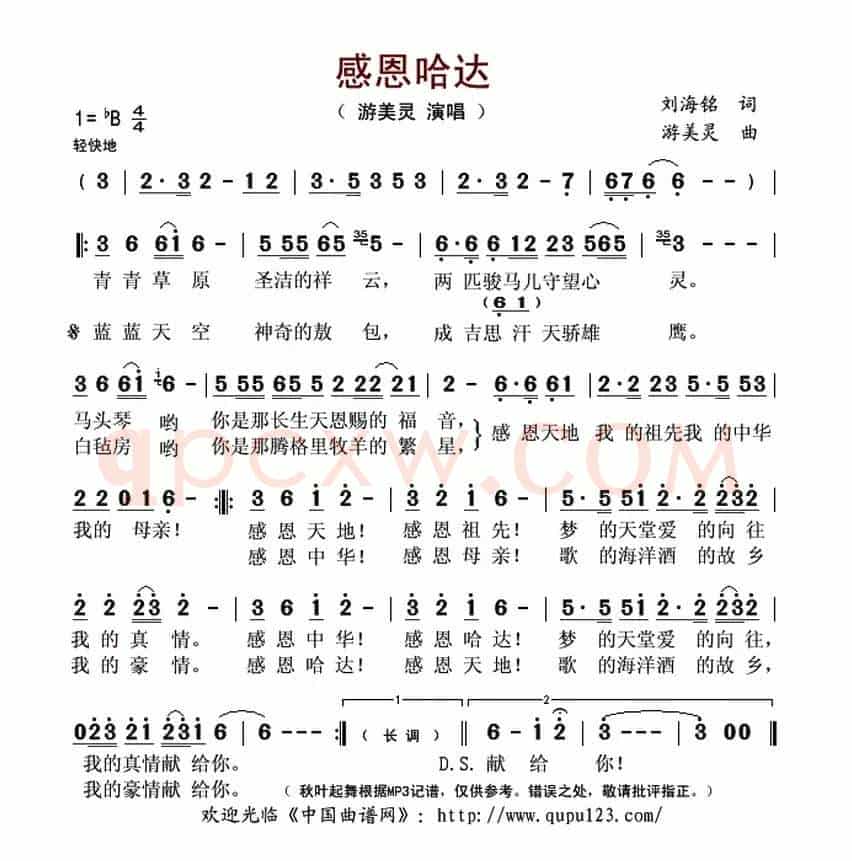 感恩哈达
( 游美灵 演唱 )
刘海铭 词
1= ♭B 4/4
游美灵 曲
轻快地
( 3 | 2· 3 2 - 1 2 | 3· 5 3 5 3 | 2· 3 2 - 7 | 6 7 6 6 - - ) |
3 6 6 1 6 - | 5 5 5 6 5 35 5 - | 6· 6 6 1 2 2 3 5 6 5 | 35 3 - - |
青 青 草 原 圣洁的祥 云, 两 匹骏马儿守望心 灵。
( 6 1 )
蓝 蓝 天 空 神奇的敖 包, 成 吉思 汗 天骄雄 鹰。
3 6 6 1 6 - | 5 5 5 6 5 5 2 2 2 2 1 | 2 - 6· 6 6 1 | 2· 2 2 3 5· 5 5 3 |
马头琴 哟 你是那长生天恩赐的 福 音,
感 恩天地 我 的祖先我 的中华
白毡房 哟 你是那腾格里牧羊的 繁 星,
2 2 0 1 6 - :||: 3 6 1 2 - | 3 6 1 2 - | 5· 5 5 1 2· 2 2 3 2 |
我的 母亲! 感 恩 天 地! 感 恩 祖 先! 梦 的天堂爱 的向 往
感 恩 中 华! 感 恩 母 亲! 歌 的海洋酒 的故 乡
2 2 2 3 2 - | 3 6 1 2 - | 3 6 1 2 - | 5· 5 5 1 2· 2 2 3 2 |
我 的 真 情。 感 恩 中 华! 感 恩 哈 达! 梦 的天堂爱 的向 往,
我 的 豪 情。 感 恩 哈 达! 感 恩 天 地! 歌 的海洋酒 的故 乡,
1 2
0 2 3 2 1 2 3 1 6 | 6 - - - :|| ( 长 调 ) || 6 - 1 2 | 3 - - - | 3 0 0 ||
我的真情献 给你。 D.S. 献 给 你!
我的豪情献 给你。 ( 秋叶起舞根据MP3记谱，仅供参考。错误之处，敬请批评指正。)
欢迎光临《中国曲谱网》: http://www.qupu123.com/
qpcxw.com